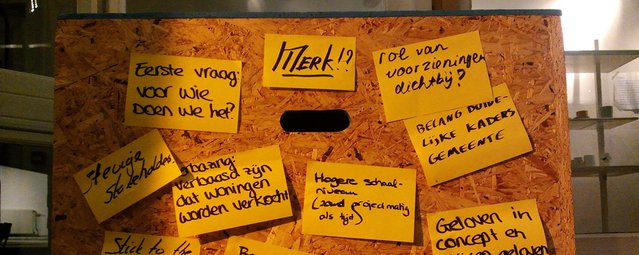 Eerste vraag:
voor wie
doen we het?
MERK!?
rol van
voorzieningen
dichtbij?
BELANG DUIDE-
LIJKE KADERS
GEMEENTE
stakeholders
verbaasd zijn
dat woningen
worden verkocht
Hogere schaal-
niveau
als tijd)
Geloven in
concept en
geloven
Stick to the